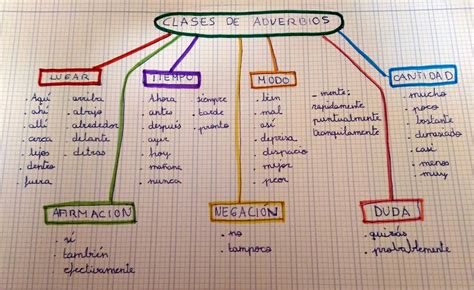 CLASES DE ADVERBIOS
LUGAR
. Aquí
. ahí
. allí
. cerca
. lejos
. dentro
. fuera
. arriba
. abajo
. alrededor
. delante
. detrás
TIEMPO
. Ahora
. antes
. después
. ayer
. hoy
. mañana
. nunca
. siempre
. tarde
. pronto
MODO
. bien
. mal
. así
. deprisa
. despacio
. mejor
. peor
- mente:
rapidamente
puntualmente
tranquilamente
CANTIDAD
. mucho
. poco
. bastante
. demasiado
. casi
. menos
. muy
AFIRMACION
. sí
. también
. efectivamente
NEGACIÓN
. no
. tampoco
DUDA
. quizás
. probablemente